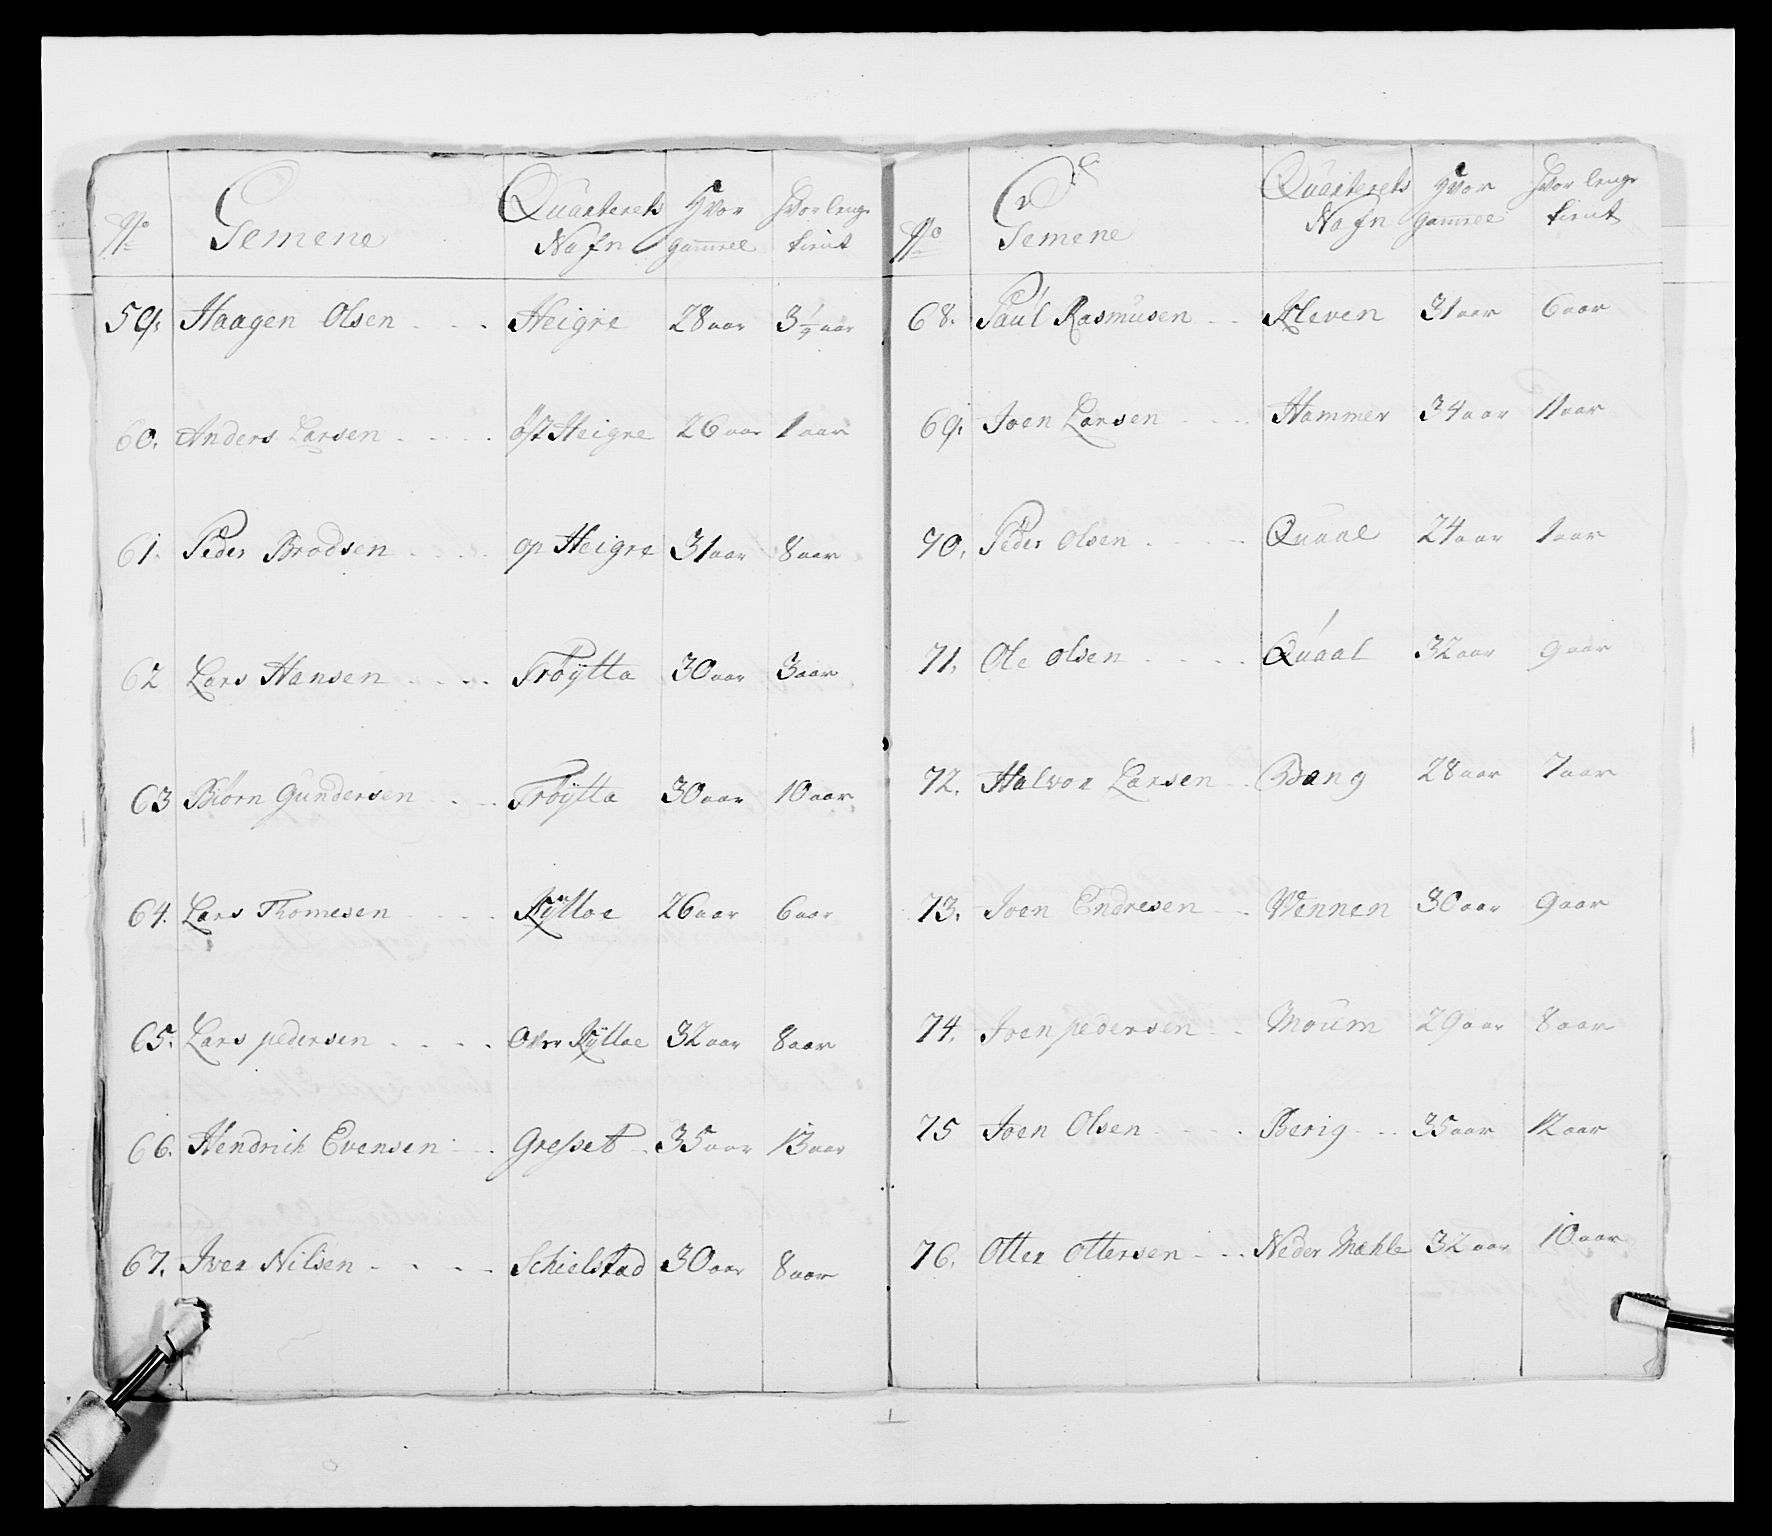 No Gemene Quarterets Nafn Hvor gammel Hvor lenge tient
59. Haagen Olsen Heigre 28 aar 3 1/4 aar
60. Anders Larsen öst Heigre 26 aar 1 aar
61. Peder Brodsen op Heigre 31 aar 8 aar
62 Lars Hansen Tröÿtta 30 aar 3 aar
63 Biörn Gundersen Tröÿtta 30 aar 10 aar
64. Lars Thomesen Kÿlloe 26 aar 6 aar
65. Lars pedersen Over Kÿlloe 32 aar 8 aar
66. Hendrich Evensen Gresset 35 aar 13 aar
67. Iver Nilsen Schielstad 30 aar 8 aar
No Gemene Quarterets Nafn Hvor gammel Hvor lenge tient
68. Paul Rasmusen Kleven 31 aar 6 aar
69. Joen Larsen Hammer 34 aar 11 aar
70. Peder Olsen Quaal 24 aar 1 aar
71. Ole Olsen Quaal 32 aar 9 aar
72. Halvor Larsen Bang 28 aar 7 aar
73. Joen Endresen Wennen 30 aar 9 aar
74. Joen pedersen Moum 29 aar 8 aar
75 Joen Olsen Berig 35 aar 12 aar
76. Otter Ottersen Neder Mæhle 32 aar 10 aar